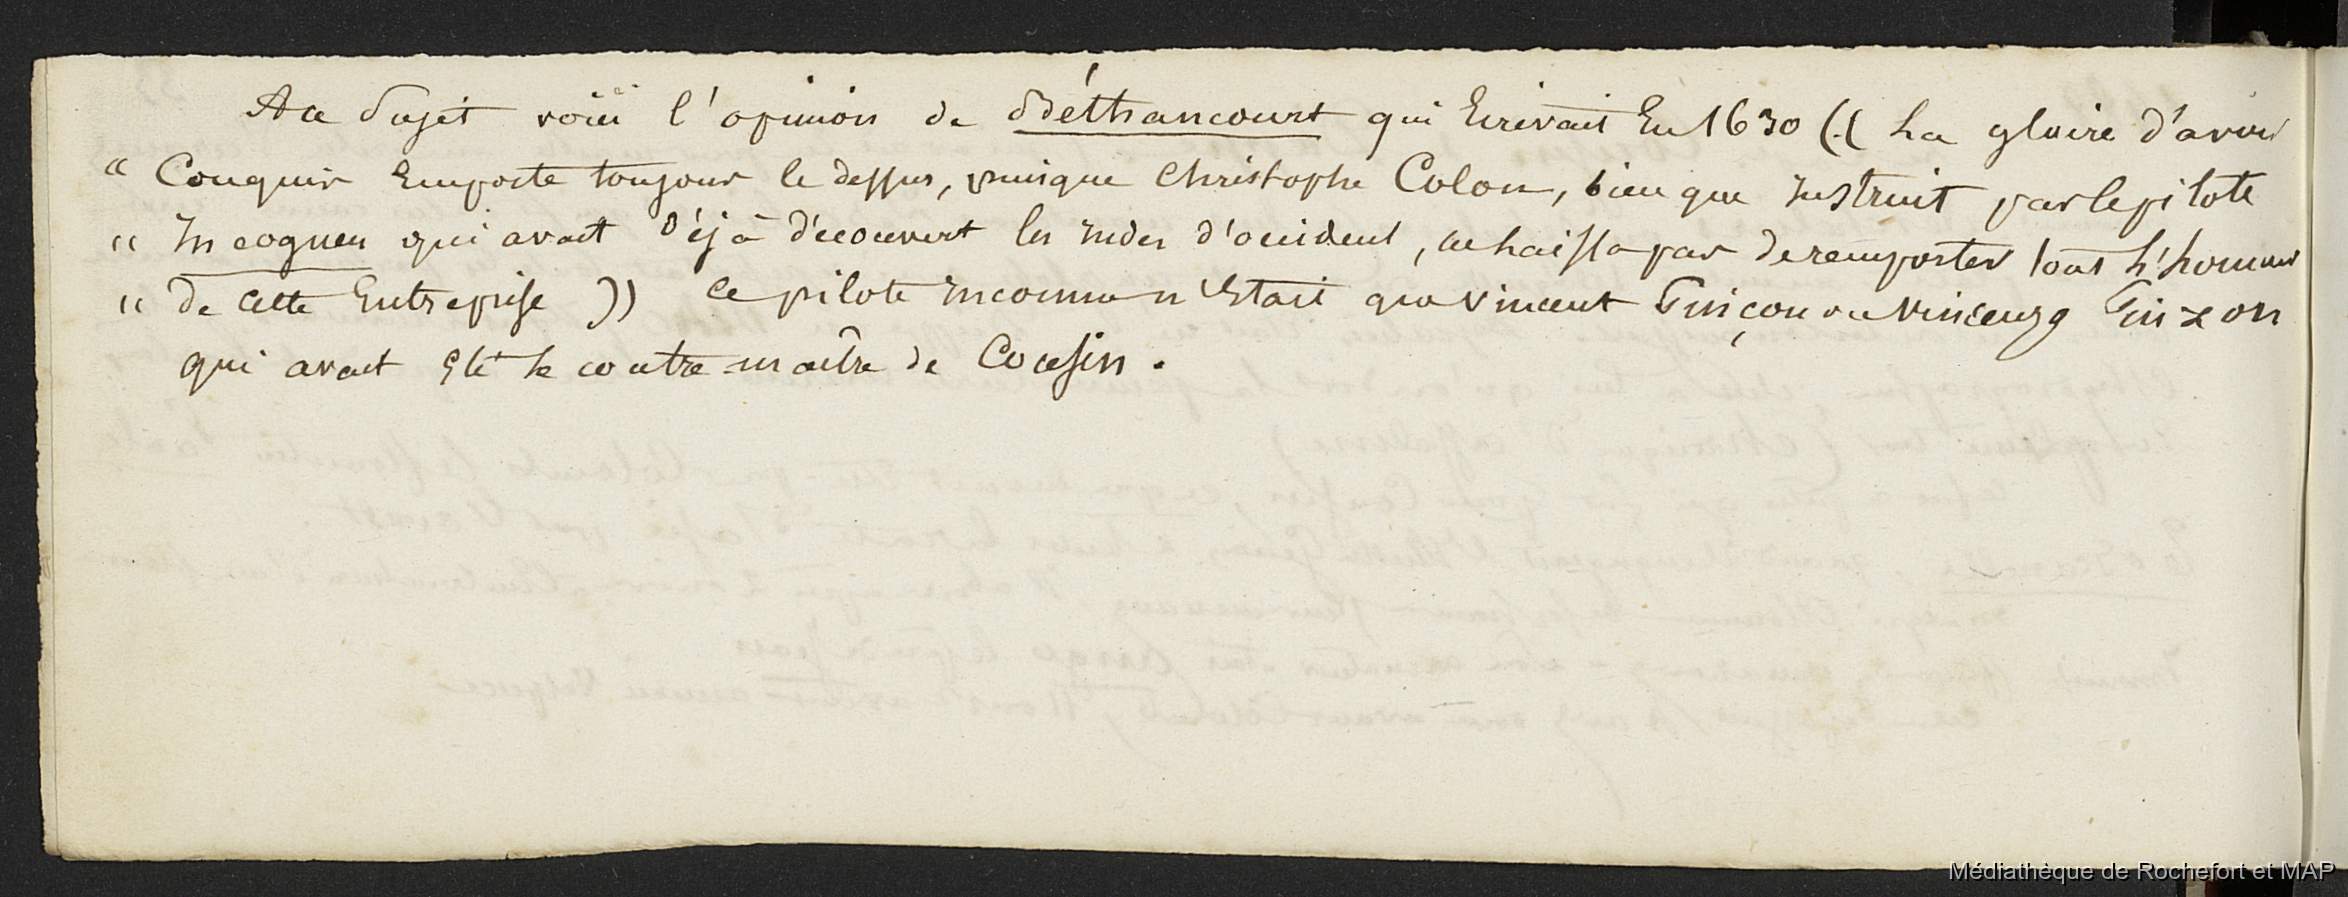 A ce sujet voici l'opinion de Béthancourt qui Ecrivait En 1630 (( La gloire d'avoir
" Conquir Emporte toujour le dessus, puisque Christophe Colon, bien que Instruit par le pilote
" Incogneu qui avait déjà découvert les Indes d'occident, ne laissa pas de remporter tout l'honneur
" de cette Entreprise )) ce pilote inconnu n'Etait que Vincent Pinçon ou Vincenzo Pinzon
qui avait Eté le contre-maître de Cousin.
Médiathèque de Rochefort et MAP